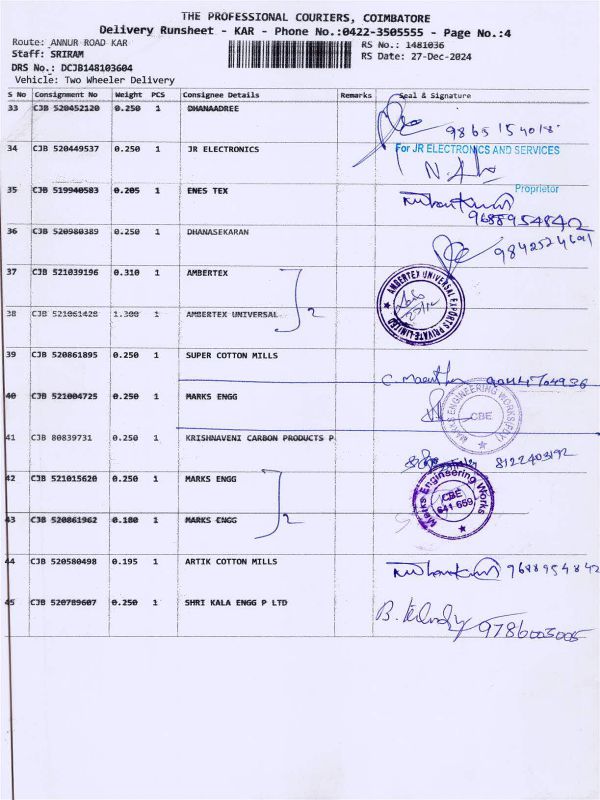 THE PROFESSIONAL COURIERS, COIMBATORE
Delivery Runsheet - KAR - Phone No.:0422-3505555 - Page No.:4
Route: ANNUR ROAD KAR RS No.: 1481036
Staff: SRIRAM RS Date: 27-Dec-2024
DRS No.: DCJB148103604
Vehicle: Two Wheeler Delivery
S No Consignment No Weight PCS Consignee Details Remarks Seal & Signature
33 CJB 520452120 0.250 1 DHANAADREE
9865154018
34 CJB 520449537 0.250 1 JR ELECTRONICS For JR ELECTRONICS AND SERVICES
Proprietor
35 CJB 519940583 0.205 1 ENES TEX
9688954842
36 CJB 520980389 0.250 1 DHANASEKARAN
9842524691
37 CJB 521039196 0.310 1 AMBERTEX
2
AMBERTEX UNIVERSAL EXPORTS PRIVATE LIMITED
38 CJB 521061428 1.300 1 AMBERTEX UNIVERSAL
39 CJB 520861895 0.250 1 SUPER COTTON MILLS
40 CJB 521004725 0.250 1 MARKS ENGG
MARKS ENGINEERING WORKS
CBE
41 CJB 80839731 0.250 1 KRISHNAVENI CARBON PRODUCTS P
8122403192
42 CJB 521015620 0.250 1 MARKS ENGG
2
Marks Engineering Works
CBE
641 659
43 CJB 520861962 0.180 1 MARKS ENGG
44 CJB 520580498 0.195 1 ARTIK COTTON MILLS
9688954842
45 CJB 520789607 0.250 1 SHRI KALA ENGG P LTD
9786003005